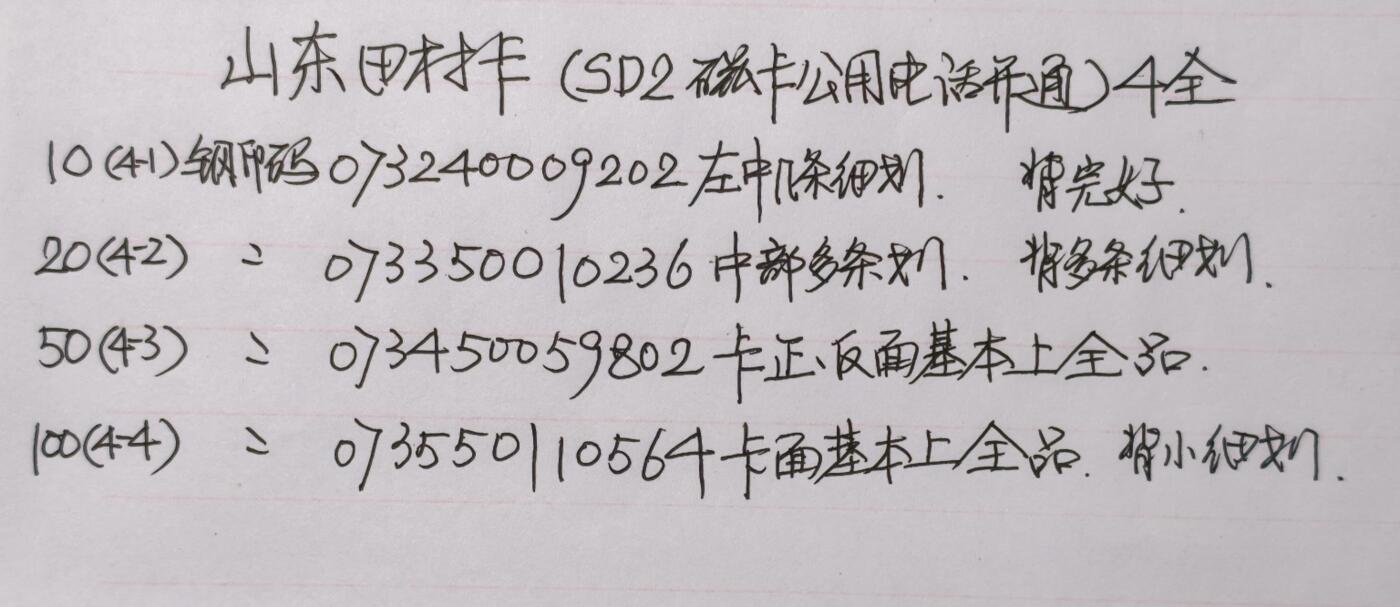 山东田村卡(SD2磁卡公用电话开通)4全
10(4-1)钢印码073240009202左中几条细划. 背完好.
20(4-2) 〃 073350010236中部多条划. 背多条细划.
50(4-3) 〃 073450059802卡正、反面基本上全品.
100(4-4) 〃 073550110564卡面基本上全品. 背小细划.